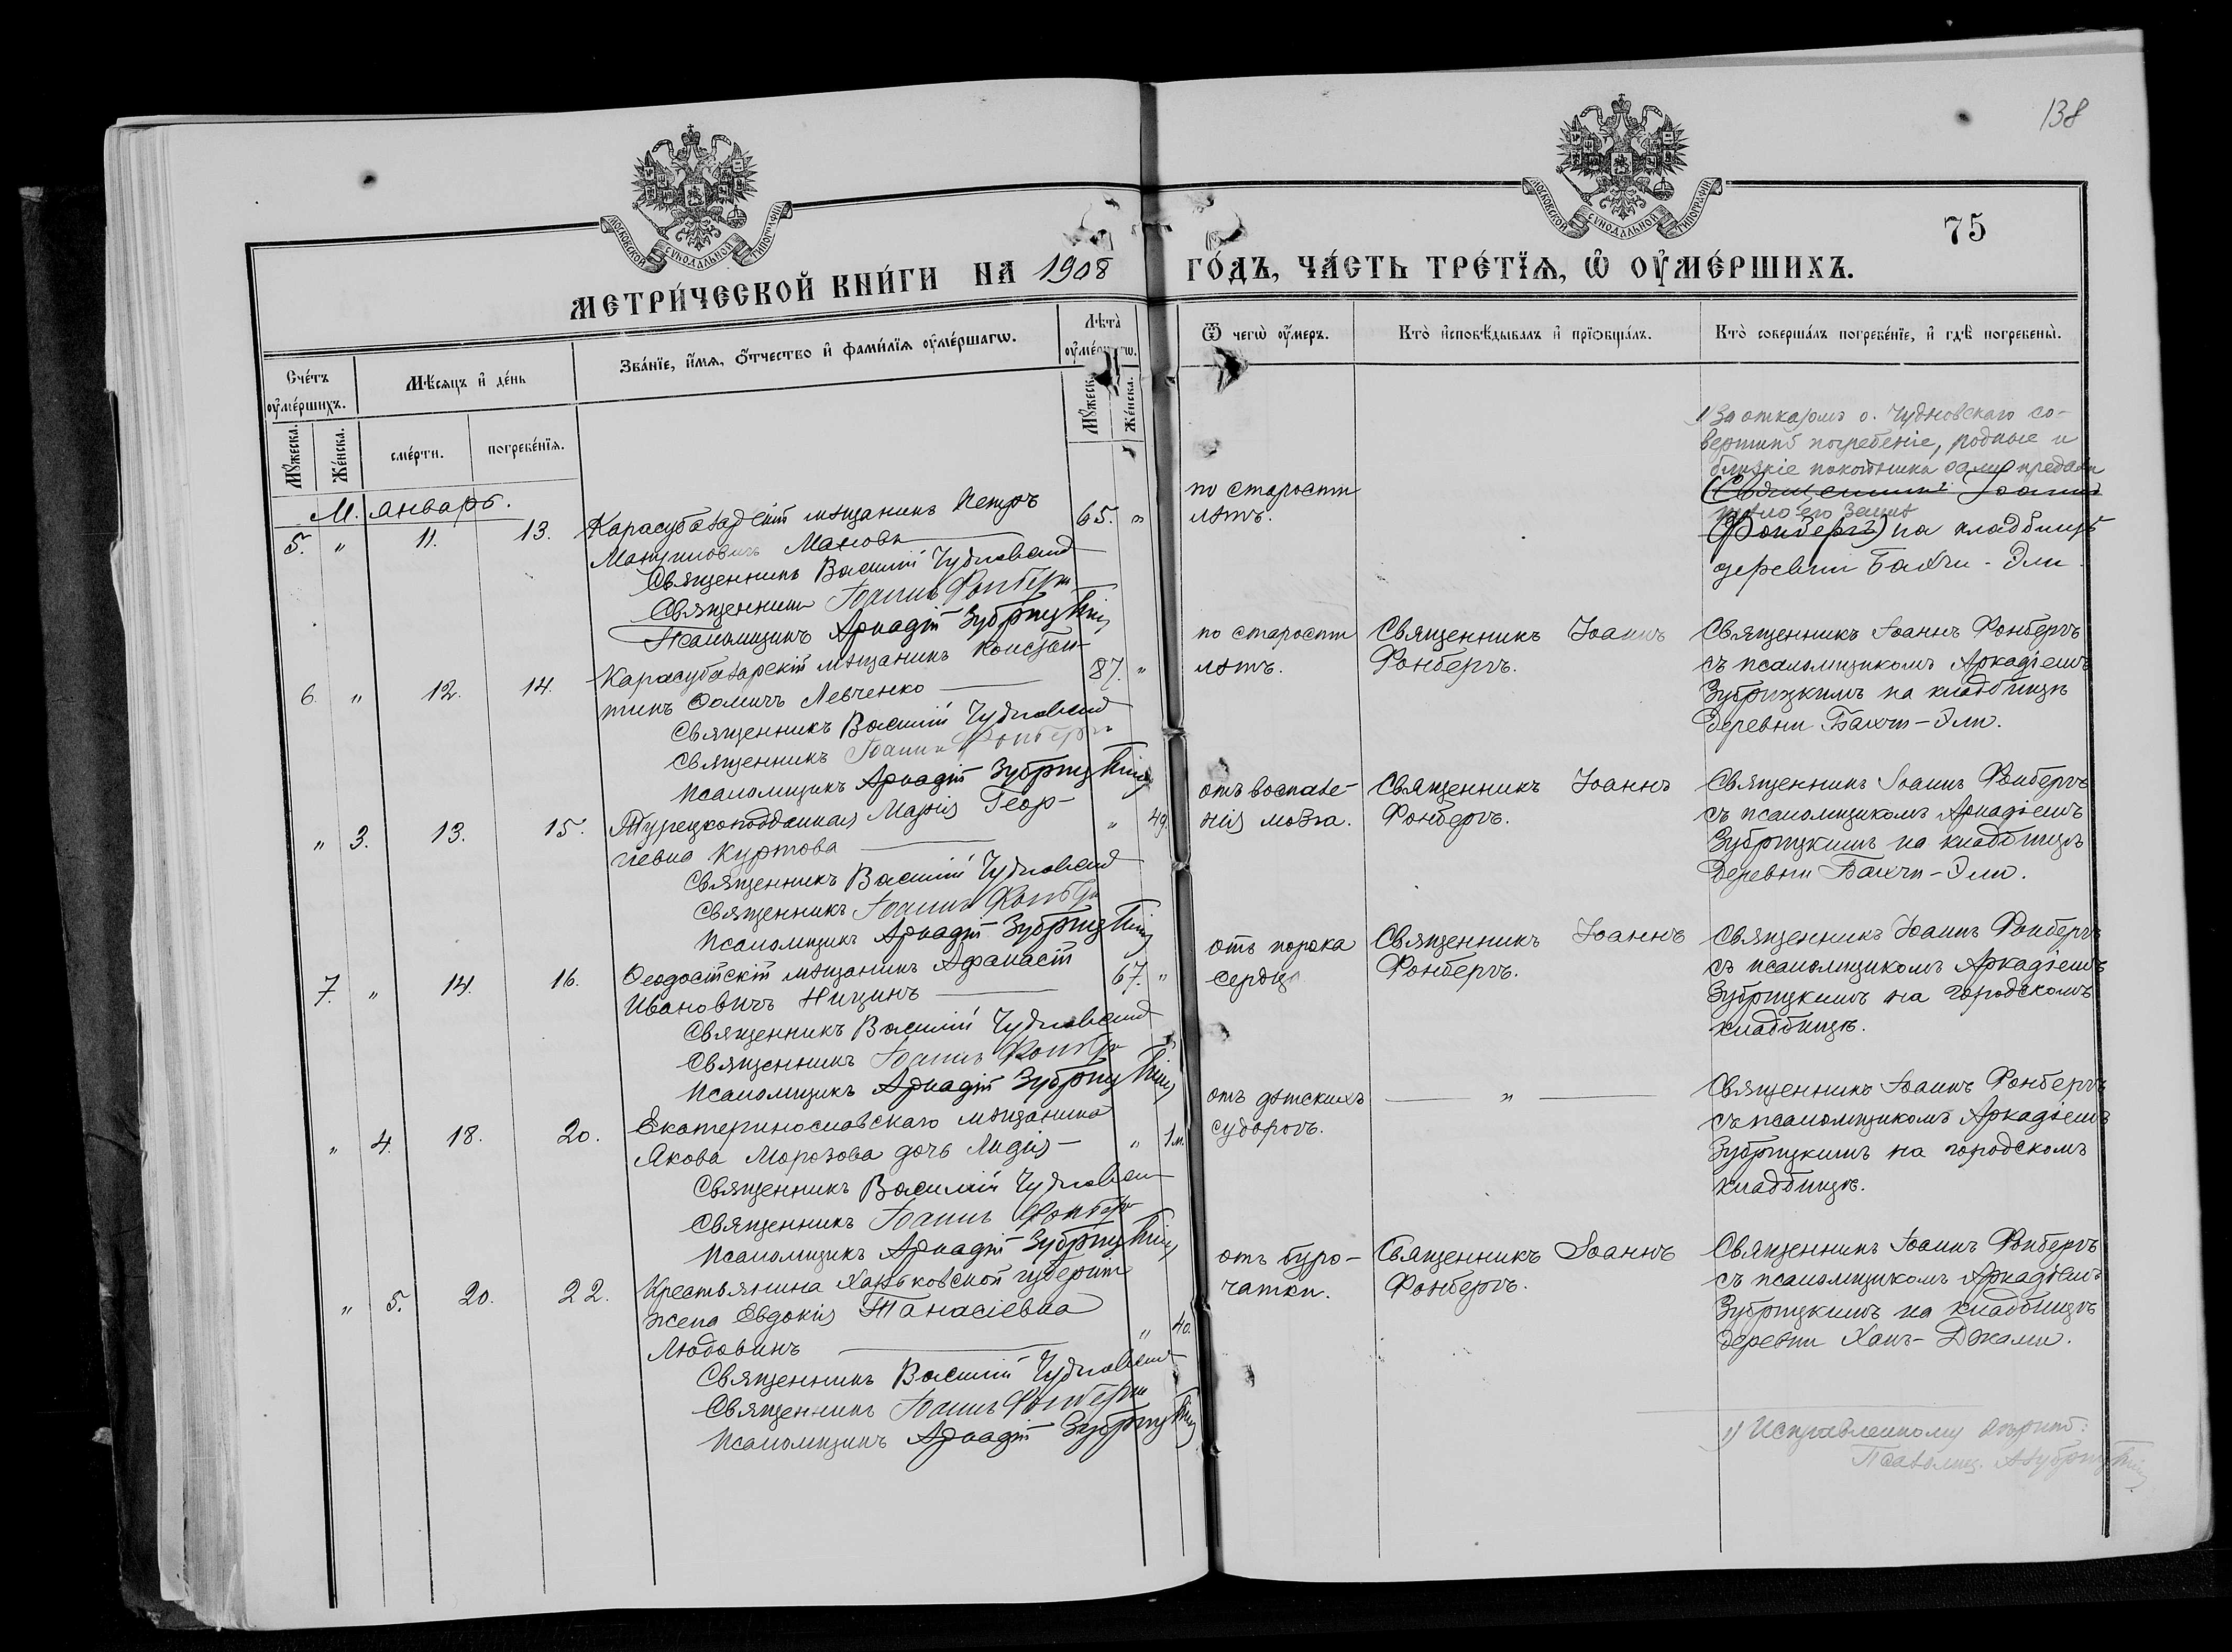 138
МОСКОВСКОЙ СѴНОДАЛЬНОЙ ТИПОГРАФІИ
МОСКОВСКОЙ СѴНОДАЛЬНОЙ ТИПОГРАФІИ
75
МЕТРИ́ЧЕСКОЙ КНИ́ГИ НА 1908
ГО́ДЪ, ЧА́СТЬ ТРЕ́ТЇѦ, Ѡ҆ ОУ҆МЕ́РШИХЪ.
Сче́тъ оу҆ме́ршихъ.
Мѣ́сяцъ и҆ де́нь
Зва́нїе, и҆́мѧ, ѻ҆́тчество и҆ фами́лїѧ оу҆ме́ршагѡ.
Лѣ́та̀ оу҆ме́ршагѡ.
Мꙋ́жеска.
Же́нска.
сме́рти.
погребе́нїѧ.
Мꙋ́жеска.
Же́нска.
Ѿ чегѡ̀ оу҆́меръ.
Кто̀ и҆сповѣ́дывалъ и҆ прїѡбща́лъ.
Кто̀ соверша́лъ погребе́нїе, и҆ гдѣ̀ погребены̀.
М. январь.
5. " 11. 13. Карасубазарскій мѣщанинъ Петръ 65. "
Мануиловичъ Мановъ
Священникъ Василій Чудновскій
Священникъ Іоаннъ Фонбергъ
Псаломщикъ Аркадій Зубрицкій
по старости
лѣтъ.
1) За отказомъ о. Чудновскаго со-
вершить погребеніе, родные и
близкіе покойника сами предали
(Священникъ Іоаннъ
тѣло его землѣ
Фонбергъ) на кладбищѣ
деревни Бахчи-Эли.
6. " 12. 14. Карасубазарскій мѣщанинъ Констан- 87. "
тинъ Ѳомичъ Левченко
Священникъ Василій Чудновскій
Священникъ Іоаннъ Фонбергъ
Псаломщикъ Аркадій Зубрицкій
по старости
лѣтъ.
Священникъ Іоаннъ
Фонбергъ.
Священникъ Іоаннъ Фонбергъ
съ псаломщикомъ Аркадіемъ
Зубрицкимъ на кладбищѣ
деревни Бахчи-Эли.
" 3. 13. 15. Турецкоподданная Марія Геор- " 49.
гіевна Куртова
Священникъ Василій Чудновскій
Священникъ Іоаннъ Фонбергъ
Псаломщикъ Аркадій Зубрицкій
отъ воспале-
нія мозга.
Священникъ Іоаннъ
Фонбергъ.
Священникъ Іоаннъ Фонбергъ
съ псаломщикомъ Аркадіемъ
Зубрицкимъ на кладбищѣ
деревни Бахчи-Эли.
7. " 14. 16. Ѳеодосійскій мѣщанинъ Афанасій 67. "
Ивановичъ Ницинъ
Священникъ Василій Чудновскій
Священникъ Іоаннъ Фонбергъ
Псаломщикъ Аркадій Зубрицкій
отъ порока
сердца
Священникъ Іоаннъ
Фонбергъ.
Священникъ Іоаннъ Фонбергъ
съ псаломщикомъ Аркадіемъ
Зубрицкимъ на городскомъ
кладбищѣ.
" 4. 18. 20. Екатеринославскаго мѣщанина
Якова Морозова дочь Лидія " 1м.
Священникъ Василій Чудновскій
Священникъ Іоаннъ Фонбергъ
Псаломщикъ Аркадій Зубрицкій
отъ дѣтскихъ
судорогъ.
"
Священникъ Іоаннъ Фонбергъ
съ псаломщикомъ Аркадіемъ
Зубрицкимъ на городскомъ
кладбищѣ.
" 5. 20. 22. Крестьянина Харьковской губерніи
жена Евдокія Танасіевна
Людовинъ " 40.
Священникъ Василій Чудновскій
Священникъ Іоаннъ Фонбергъ
Псаломщикъ Аркадій Зубрицкій
отъ бугор-
чатки.
Священникъ Іоаннъ
Фонбергъ.
Священникъ Іоаннъ Фонбергъ
съ псаломщикомъ Аркадіемъ
Зубрицкимъ на кладбищѣ
деревни Ханъ-Джами.
1) Исправленному вѣрить:
Псаломщ. Зубрицкій